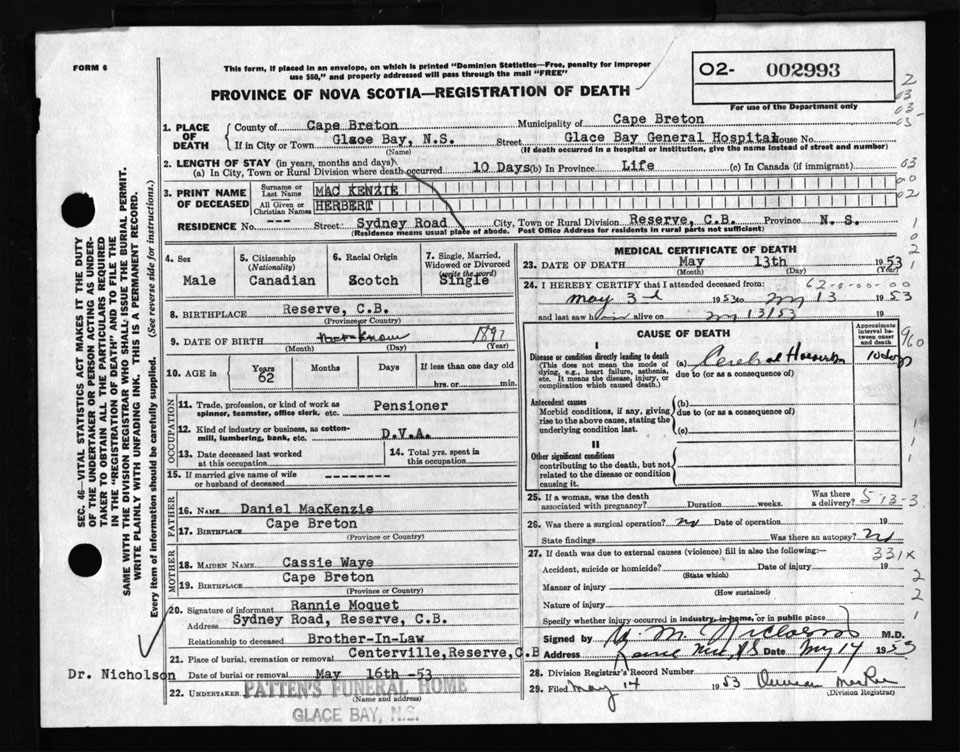 FORM 6
This form, if placed in an envelope, on which is printed "Dominion Statistics—Free, penalty for improper
use $50," and properly addressed will pass through the mail "FREE"
02- 002993
PROVINCE OF NOVA SCOTIA—REGISTRATION OF DEATH
For use of the Department only
2
03
03
05
1. PLACE OF DEATH
County of Cape Breton Municipality of Cape Breton
If in City or Town Glace Bay, N.S. Street Glace Bay General Hospital House No.
(Name) (If death occurred in a hospital or institution, give the name instead of street and number)
2. LENGTH OF STAY (in years, months and days)
(a) In City, Town or Rural Division where death occurred 10 Days (b) In Province Life (c) In Canada (if immigrant)
03
00
02
3. PRINT NAME OF DECEASED
Surname or Last Name MAC KENZIE
All Given or Christian Names HERBERT
RESIDENCE No. --- Street Sydney Road City, Town or Rural Division Reserve, C.B. Province N. S.
(Residence means usual place of abode. Post Office Address for residents in rural parts not sufficient)
1
0
2
1
4. Sex
Male
5. Citizenship (Nationality)
Canadian
6. Racial Origin
Scotch
7. Single, Married, Widowed or Divorced (write the word)
Single
8. BIRTHPLACE Reserve, C.B.
(Province or Country)
9. DATE OF BIRTH Not Known 1891
(Month) (Day) (Year)
10. AGE in Years 62 Months Days If less than one day old
hrs. or min.
OCCUPATION
11. Trade, profession or kind of work as
spinner, teamster, office clerk, etc. Pensioner
12. Kind of industry or business, as cotton-
mill, lumbering, bank, etc. D.V.A.
13. Date deceased last worked
at this occupation
14. Total yrs. spent in
this occupation
15. If married give name of wife
or husband of deceased ---------
FATHER
16. NAME Daniel MacKenzie
17. BIRTHPLACE Cape Breton
(Province or Country)
MOTHER
18. MAIDEN NAME Cassie Waye
19. BIRTHPLACE Cape Breton
(Province or Country)
20. Signature of informant Rannie Moquet
Address Sydney Road, Reserve, C.B.
Relationship to deceased Brother-In-Law
21. Place of burial, cremation or removal Centerville, Reserve, C.B
Date of burial or removal May 16th -53
Dr. Nicholson
22. UNDERTAKER PATTEN'S FUNERAL HOME
(Name and address)
GLACE BAY, N.S.
MEDICAL CERTIFICATE OF DEATH
23. DATE OF DEATH May 13th 1953
(Month) (Day) (Year)
24. I HEREBY CERTIFY that I attended deceased from: 62-0-00-00
May 3d 1953 to My 13 1953
and last saw h im alive on My 13/53
CAUSE OF DEATH
Approximate interval between onset and death
I
Disease or condition directly leading to death
(This does not mean the mode of
dying, e.g., heart failure, asthenia,
etc. It means the disease, injury, or
complication which caused death.)
(a) Cerebral
due to (or as a consequence of)
10 days
Antecedent causes
Morbid conditions, if any, giving
rise to the above cause, stating the
underlying condition last.
(b)
due to (or as a consequence of)
(c)
II
Other significant conditions
contributing to the death, but not
related to the disease or condition
causing it.
960
1
1
25. If a woman, was the death
associated with pregnancy? Duration weeks. Was there
a delivery? 5-13-3
26. Was there a surgical operation? no Date of operation 19
State findings Was there an autopsy? no
27. If death was due to external causes (violence) fill in also the following:—
331X
Accident, suicide or homicide? Date of injury 19
(State which)
Manner of injury
(How sustained)
Nature of injury
Specify whether injury occurred in industry, in home, or in public place
2
2
1
Signed by M. Nicholson M.D.
Address N.S Date My 14 1953
28. Division Registrar's Record Number
29. Filed May 14 1953
(Division Registrar)
SEC. 46—VITAL STATISTICS ACT MAKES IT THE DUTY
OF THE UNDERTAKER OR PERSON ACTING AS UNDER-
TAKER TO OBTAIN ALL THE PARTICULARS REQUIRED
IN THE "REGISTRATION OF DEATH" AND TO FILE THE
SAME WITH THE DIVISION REGISTRAR WHO SHALL ISSUE THE BURIAL PERMIT.
WRITE PLAINLY WITH UNFADING INK. THIS IS A PERMANENT RECORD.
Every item of information should be carefully supplied. (See reverse side for instructions.)